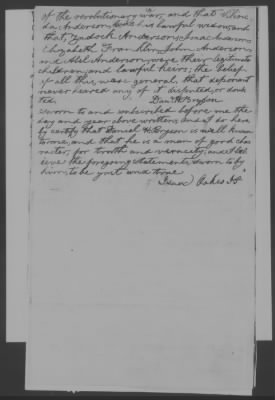 of the revolutionary war, and that
da Anderson was his lawful widow, and
that, Zadock Anderson, Isaac Anderson
Elizabeth Franklin, John Anderson
and Abel Anderson, were their legitimate
children, and lawful heirs; the belief
of all this, was general, that deponent
never heard any of it disputed, or doub
ted.
Danl. H. Bryson
Sworn to and subscribed before me, the
day and year above written, and I do here
by certify that Daniel H. Bryson is well known
to me, and that he is a man of good cha
racter, for truth and veracity, and I bel
ieve the foregoing statements, sworn to by
him, to be just and true
Oakes